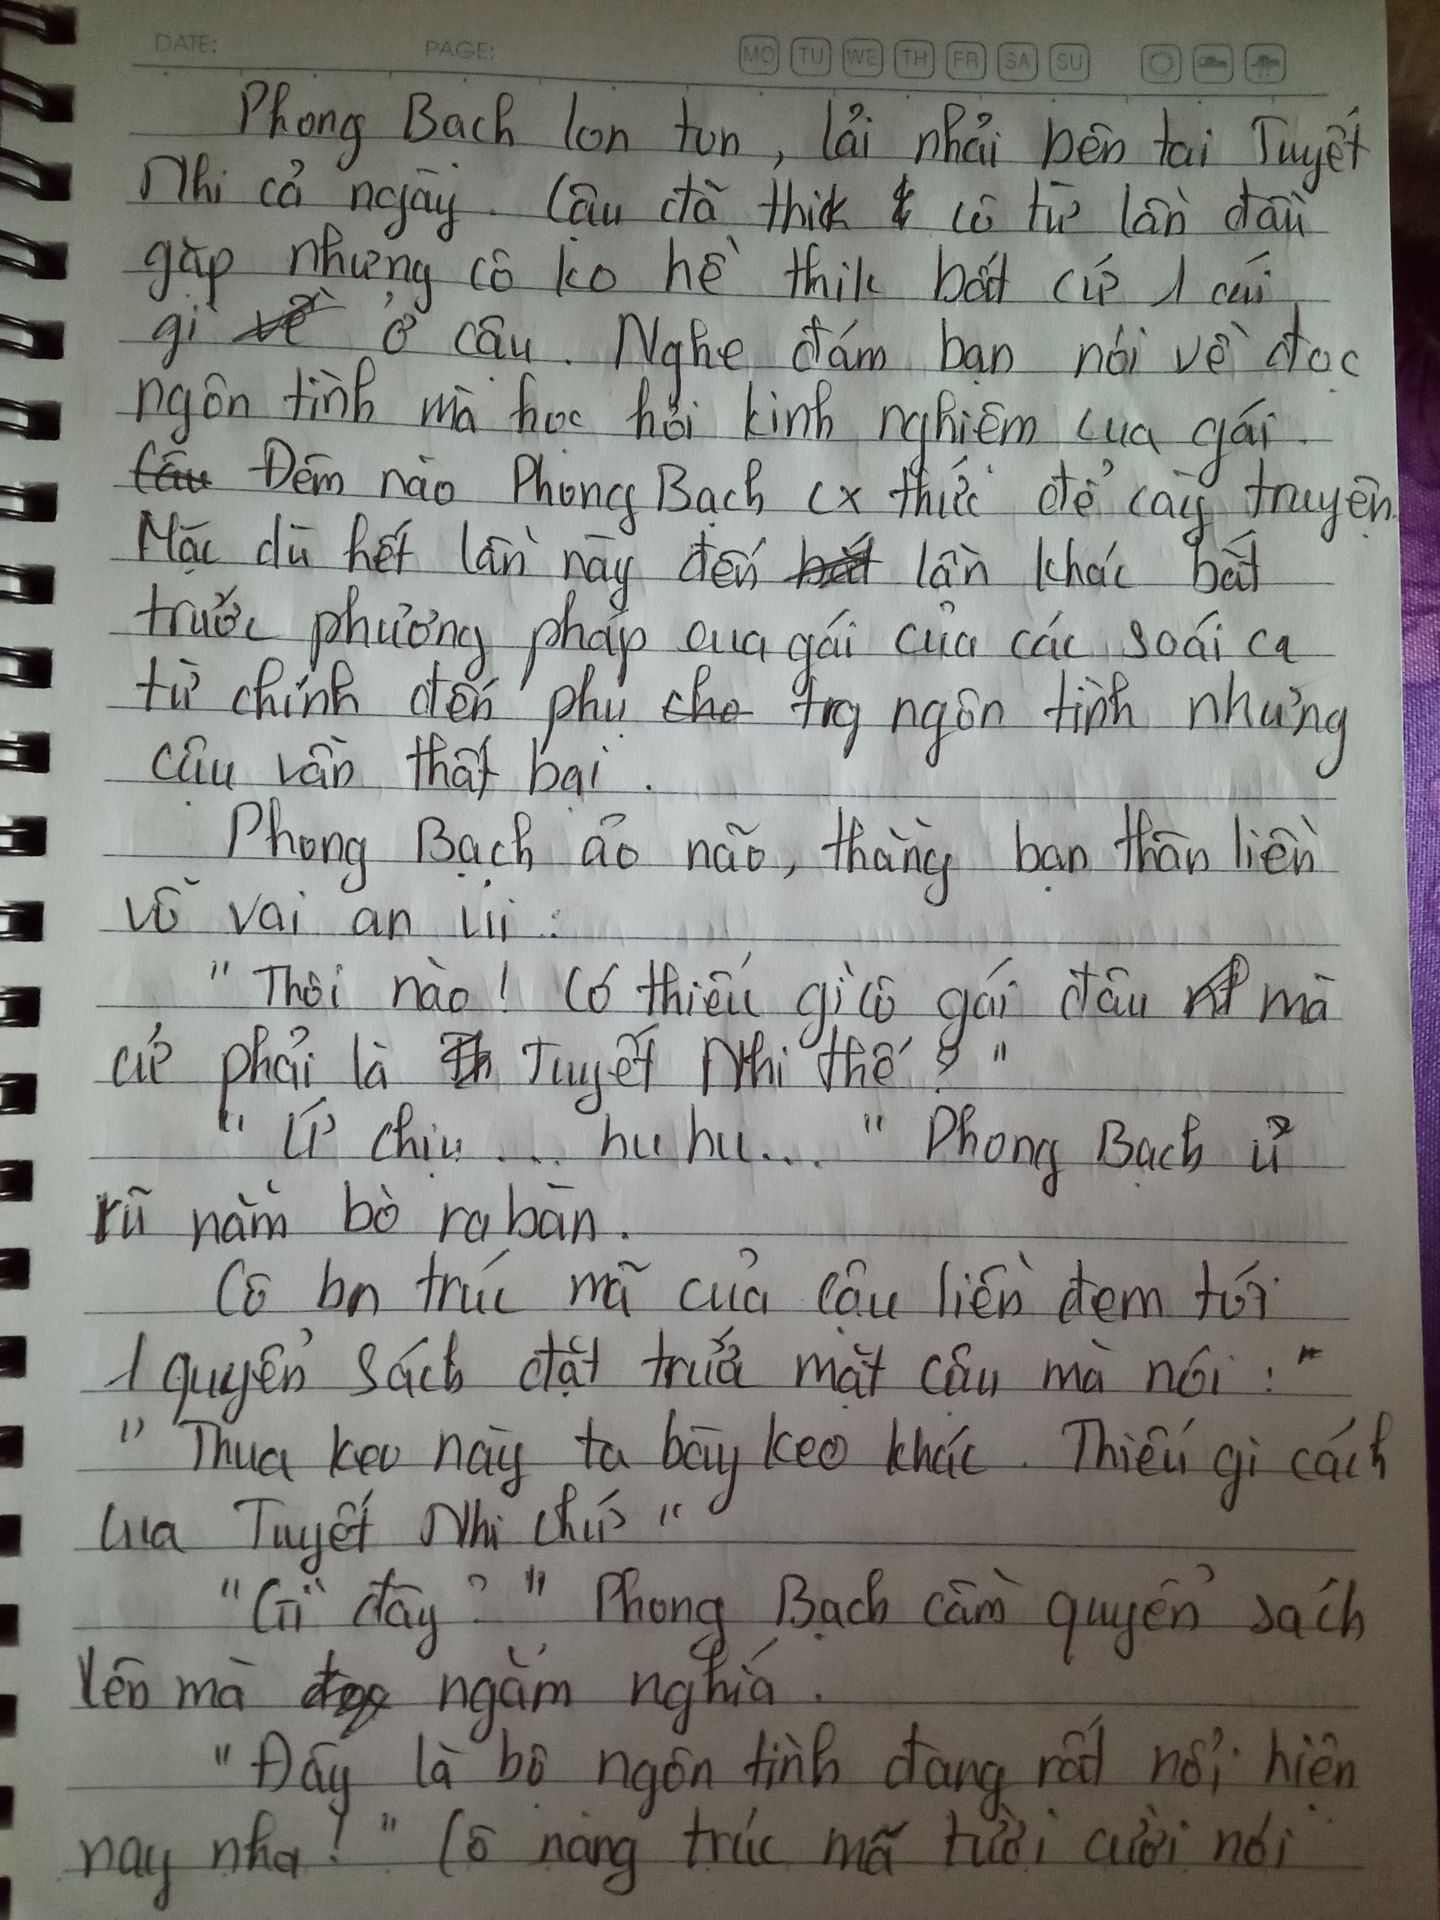 DATE: PAGE: MO TU WE TH FR SA SU
Phong Bạch lon ton, lải nhải bên tai Tuyết
Nhi cả ngày. Cậu đã thik cô từ lần đầu
gặp nhưng cô ko hề thik bất cứ 1 cái
gì ở cậu. Nghe đám bạn nói về đọc
ngôn tình mà học hỏi kinh nghiệm cua gái.
Đêm nào Phong Bạch cx thức để cày truyện.
Mặc dù hết lần này đến lần khác bắt
trước phương pháp cua gái của các soái ca
từ chính đến phụ trg ngôn tình nhưng
cậu vẫn thất bại.
Phong Bạch ảo não, thằng bạn thân liền
vỗ vai an ủi:
"Thôi nào! Có thiếu gì cô gái đâu mà
cứ phải là Tuyết Nhi thế?"
"Ứ chịu... hu hu..." Phong Bạch ủ
rũ nằm bò ra bàn.
Cô bn trúc mã của cậu liền đem tới
1 quyển sách đặt trước mặt cậu mà nói: "
"Thua keo này ta bày keo khác. Thiếu gì cách
cua Tuyết Nhi chứ"
"Gì đây?" Phong Bạch cầm quyển sách
lên mà ngắm nghía.
"Đây là bộ ngôn tình đang rất nổi hiện
nay nha!" Cô nàng trúc mã tười cười nói